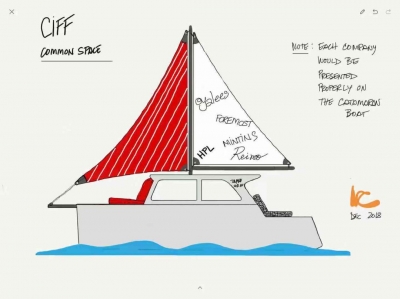 CIFF
COMMON SPACE
NOTE: EACH COMPANY
WOULD BE
PRESENTED
PROPERLY ON
THE CATAMARAN
BOAT
FOREMOST
MINTINS
HPL
DEC 2018